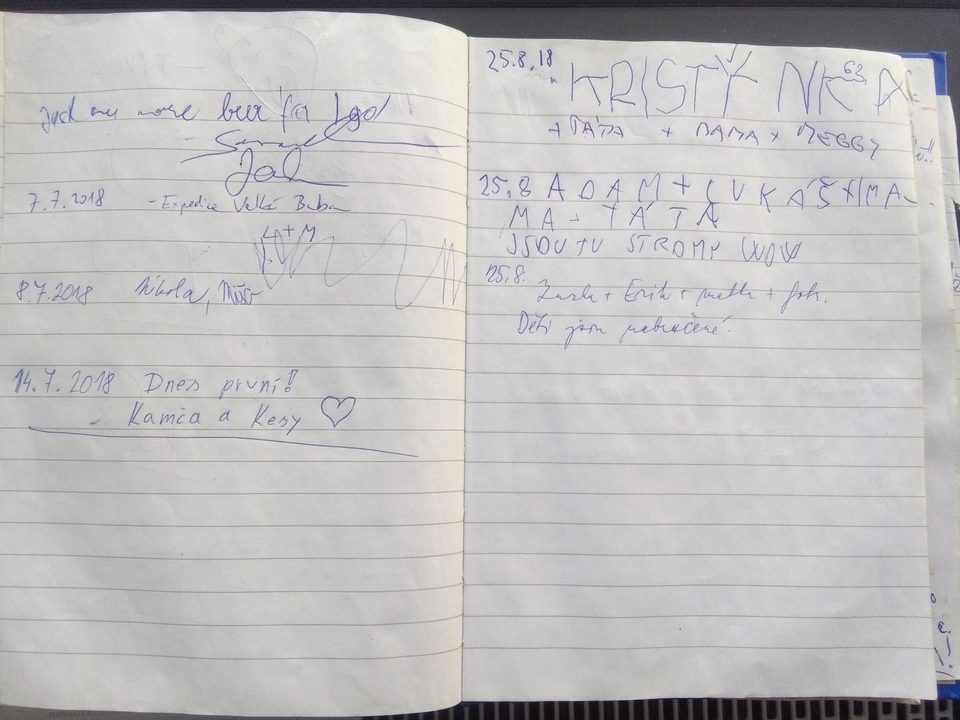 Just one more beer före I go!
7.7.2018 - Expedice Velká Baba
L+M
8.7.2018 Nikola, Míša
14.7.2018 Dnes první!
- Kamča a Kesy
25.8.18 KRISTÝNKA
62.
+ TÁTA + MAMA +
25.8 ADAM + LUKÁŠ + MA-
MA - TÁTA
JSOU TU STROMY WOW
25.8.
+ Erik +
Děti jsou